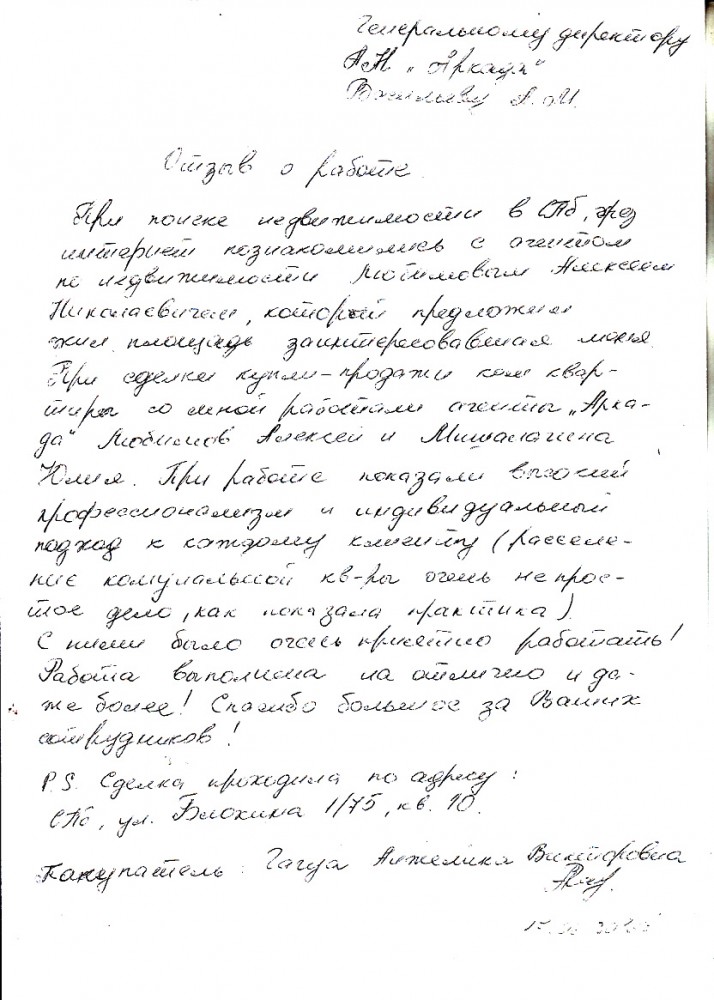 Генеральному директору
АН "Аркада"
Васильеву А.И.
Отзыв о работе.
При поиске недвижимости в СПб, чрез
интернет познакомились с агентом
по недвижимости Любимовым Алексеем
Николаевичем, который предложил
жил. площадь заинтересовавшая меня.
При сделки купли-продажи ком квар-
тиры со мной работали агенты „Арка-
да" Любимов Алексей и Мишалагина
Юлия. При работе показали высокий
профессионализм и индивидуальный
подход к каждому клиенту (расселе-
ние комунальной кв-ры очень не прос-
тое дело, как показала практика).
С ними было очень приятно работать!
Работа выполнена на отлично и да-
же более! Спасибо большое за Ваших
сотрудников!
P.S. Сделка проходила по адресу:
СПб, ул. Блохина 1/75, кв. 10.
Покупатель: Анжелика Викторовна